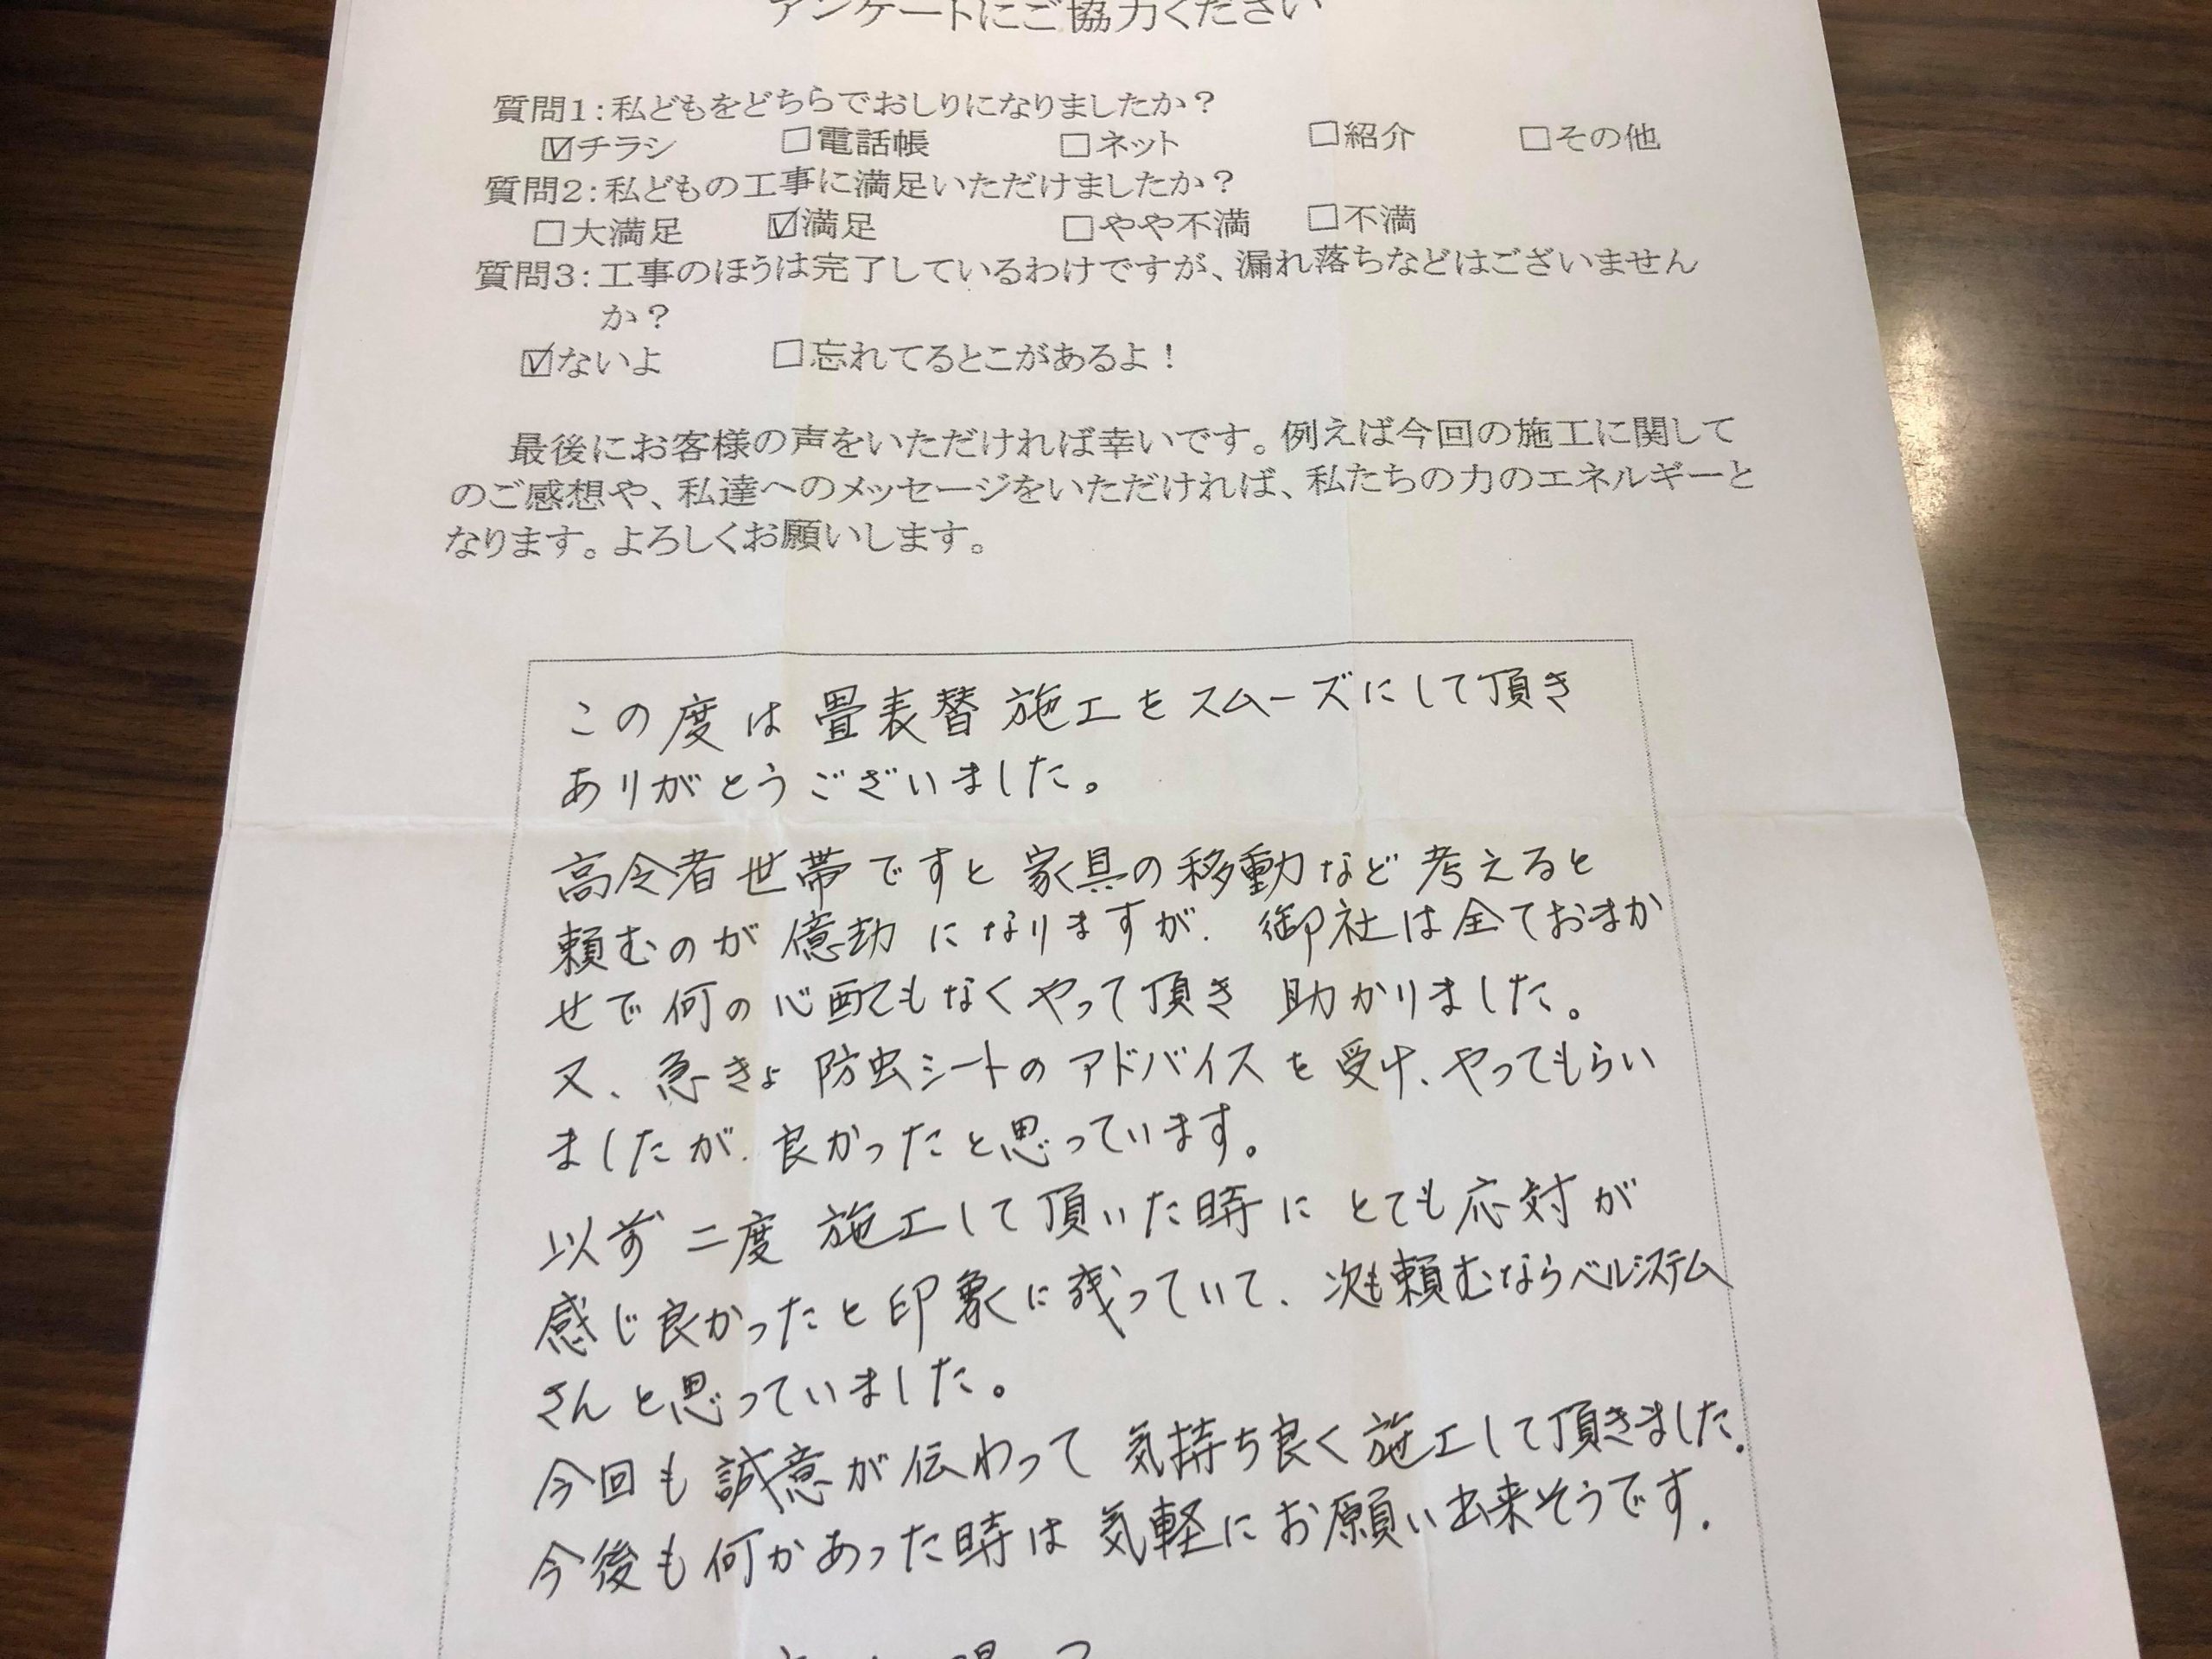 アンケートにご協力ください
質問1:私どもをどちらでおしりになりましたか?
☑チラシ ☐電話帳 ☐ネット ☐紹介 ☐その他
質問2:私どもの工事に満足いただけましたか?
☐大満足 ☑満足 ☐やや不満 ☐不満
質問3:工事のほうは完了しているわけですが、漏れ落ちなどはございません
か?
☑ないよ ☐忘れてるとこがあるよ!
最後にお客様の声をいただければ幸いです。例えば今回の施工に関して
のご感想や、私達へのメッセージをいただければ、私たちの力のエネルギーと
なります。よろしくお願いします。
この度は畳表替施工をスムーズにして頂き
ありがとうございました。
高令者世帯ですと家具の移動など考えると
頼むのが億劫になりますが、御社は全ておまか
せで何の心配もなくやって頂き助かりました。
又、急きょ防虫シートのアドバイスを受け、やってもらい
ましたが、良かったと思っています。
以前二度施工して頂いた時にとても応対が
感じ良かったと印象に残っていて、次も頼むならベルシステム
さんと思っていました。
今回も誠意が伝わって気持ち良く施工して頂きました。
今後も何かあった時は気軽にお願い出来そうです。